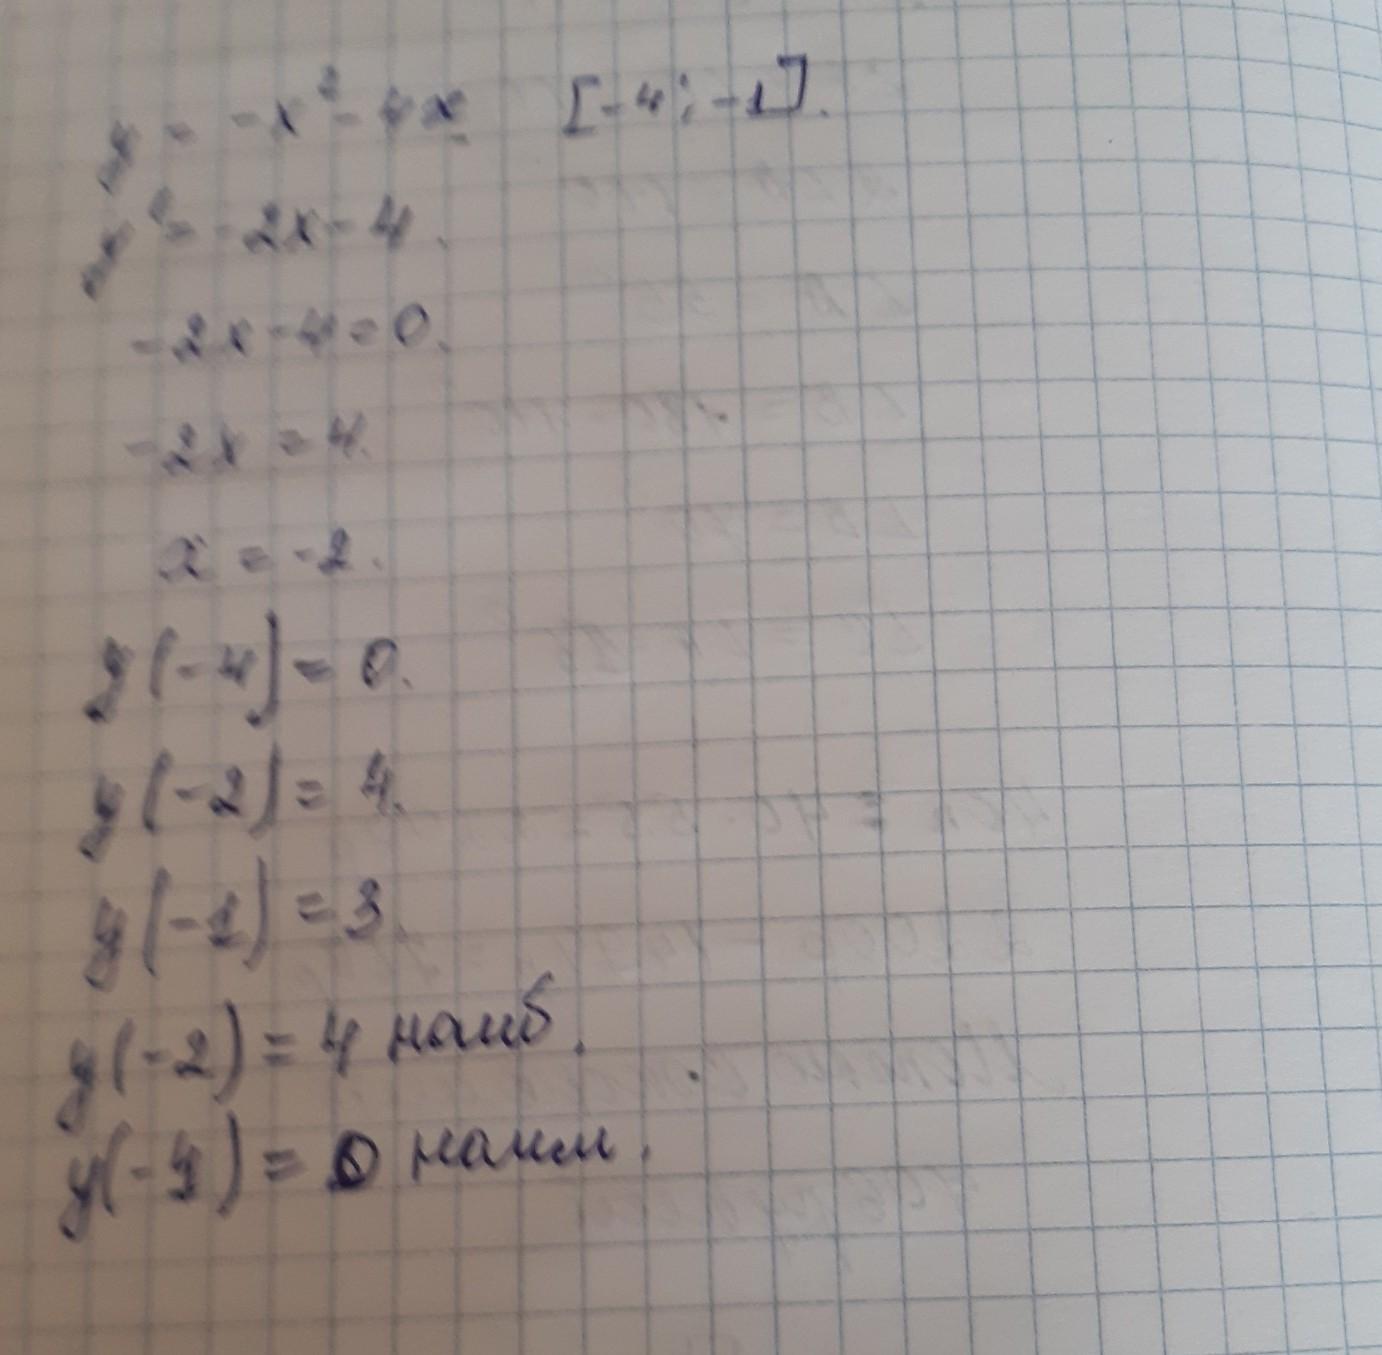 y = -x² - 4x [-4; -1].
y' = -2x - 4.
-2x - 4 = 0.
-2x = 4.
x = -2.
y(-4) = 0.
y(-2) = 4.
y(-1) = 3.
y(-2) = 4 наиб.
y(-4) = 0 наим.